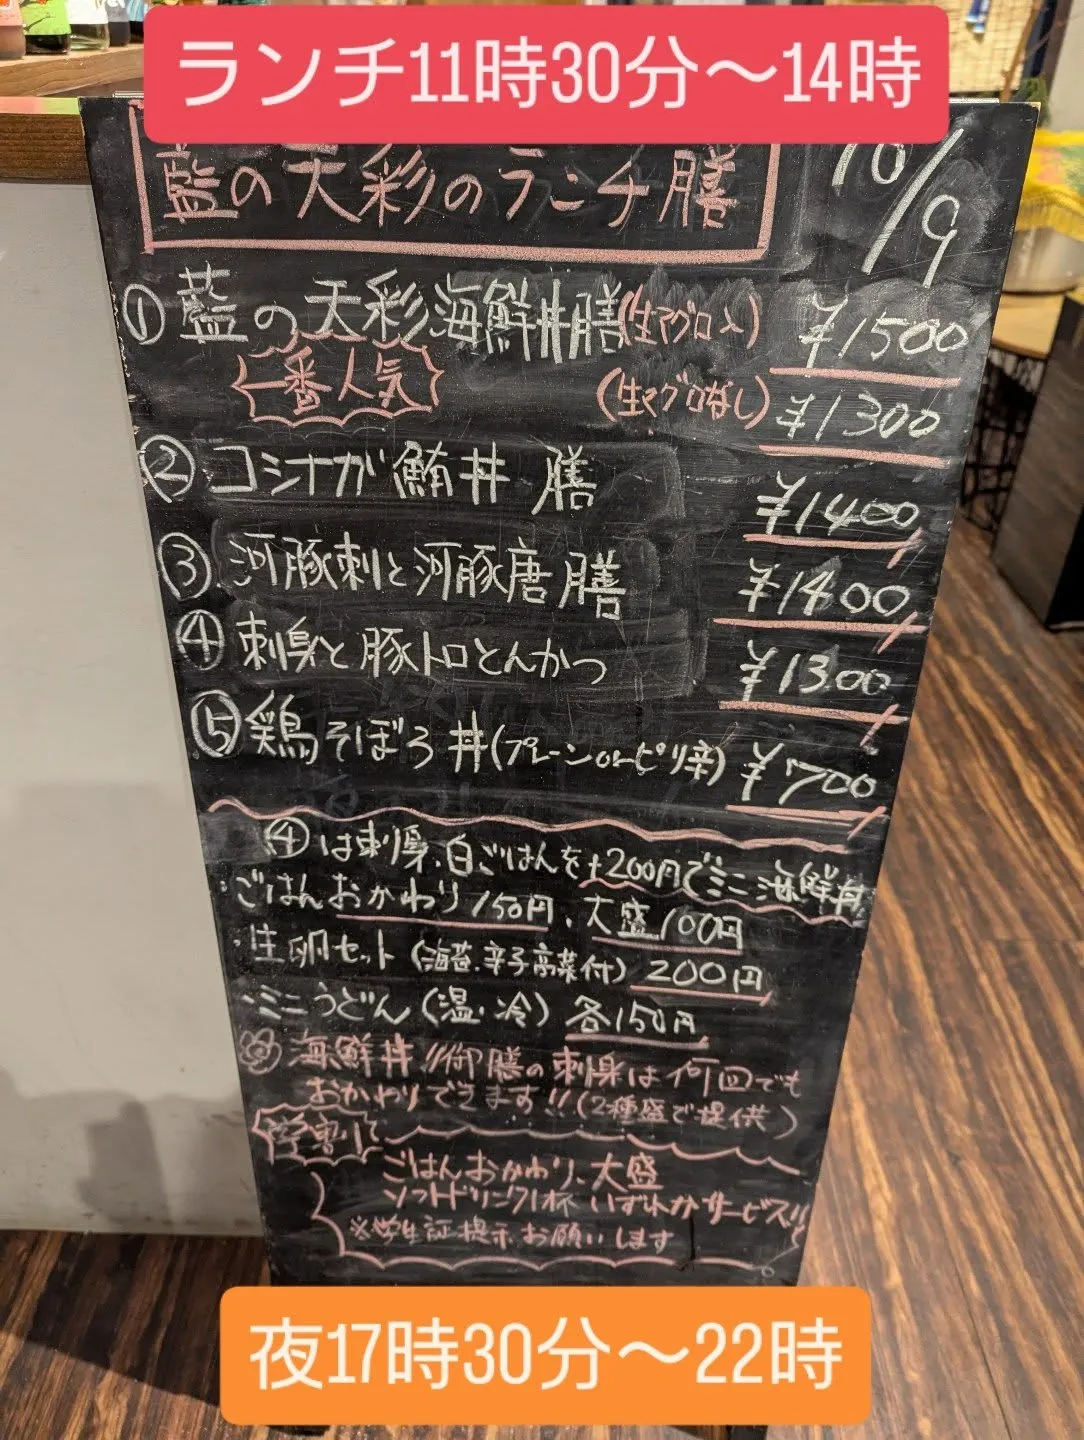 ランチ11時30分〜14時
藍の天彩のランチ膳
10/9
①藍の天彩海鮮丼膳(生マグロ入) ¥1500
一番人気
(生マグロなし) ¥1300
②コシナガ鮪丼膳 ¥1400
③河豚刺と河豚唐膳 ¥1400
④刺身と豚トロとんかつ ¥1300
⑤鶏そぼろ丼(プレーンorピリ辛) ¥700
④は刺身、白ごはんを+200円でミニ海鮮丼
・ごはんおかわり150円、大盛100円
・生卵セット(海苔、辛子高菜付)200円
・ミニうどん(温・冷)各150円
海鮮丼、御膳の刺身は何回でも
おかわりできます!!(2種盛で提供)
学割で
ごはんおかわり、大盛
ソフトドリンク1杯 いずれかサービス!!
※学生証提示お願いします
夜17時30分〜22時